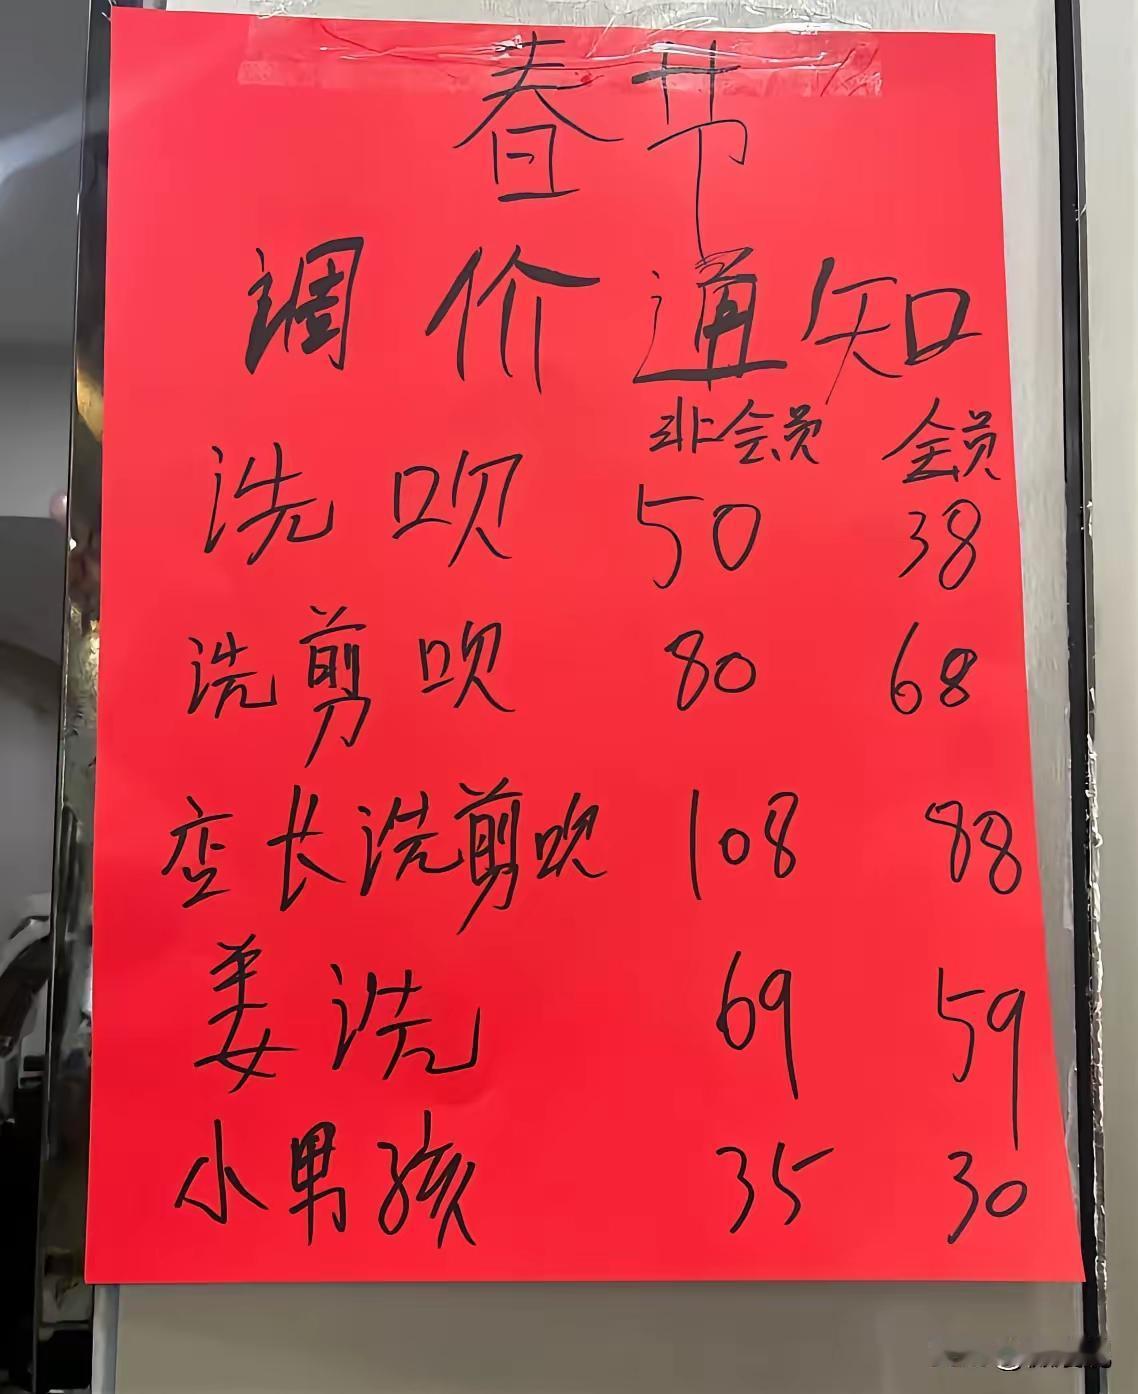 春节
调价通知
非会员 会员
洗吹 50 38
洗剪吹 80 68
店长洗剪吹 108 88
姜洗 69 59
小男孩 35 30